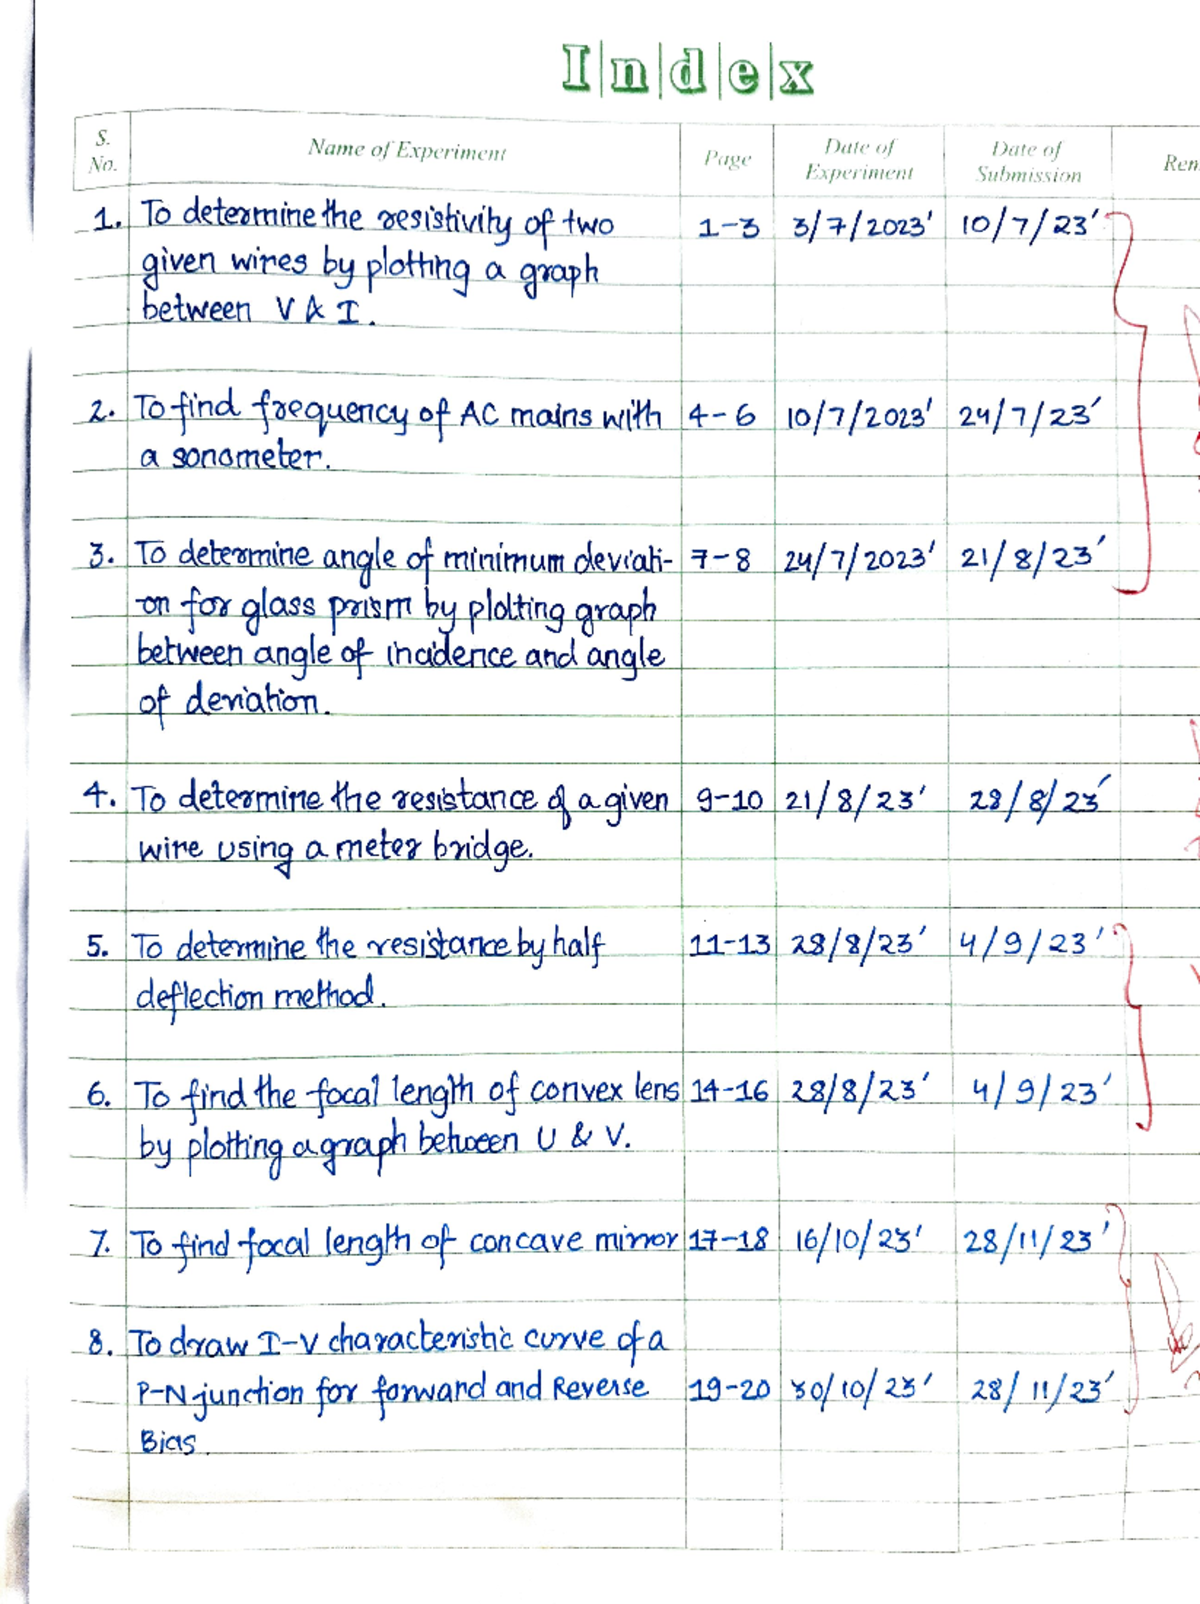 Index
S. No. Name of Experiment Page Date of Experiment Date of Submission Rem
1. To determine the resistivity of two 1-3 3/7/2023' 10/7/23'
given wires by plotting a graph
between V & I.
2. To find frequency of AC mains with 4-6 10/7/2023' 24/7/23'
a sonometer.
3. To determine angle of minimum deviati- 7-8 24/7/2023' 21/8/23'
on for glass prism by plotting graph
between angle of incidence and angle
of deviation.
4. To determine the resistance of a given 9-10 21/8/23' 28/8/23'
wire using a meter bridge.
5. To determine the resistance by half 11-13 28/8/23' 4/9/23'
deflection method.
6. To find the focal length of convex lens 14-16 28/8/23' 4/9/23'
by plotting a graph between U & V.
7. To find focal length of concave mirror 17-18 16/10/23' 28/11/23'
8. To draw I-V characteristic curve of a
P-N junction for forward and Reverse 19-20 30/10/23' 28/11/23'
Bias.